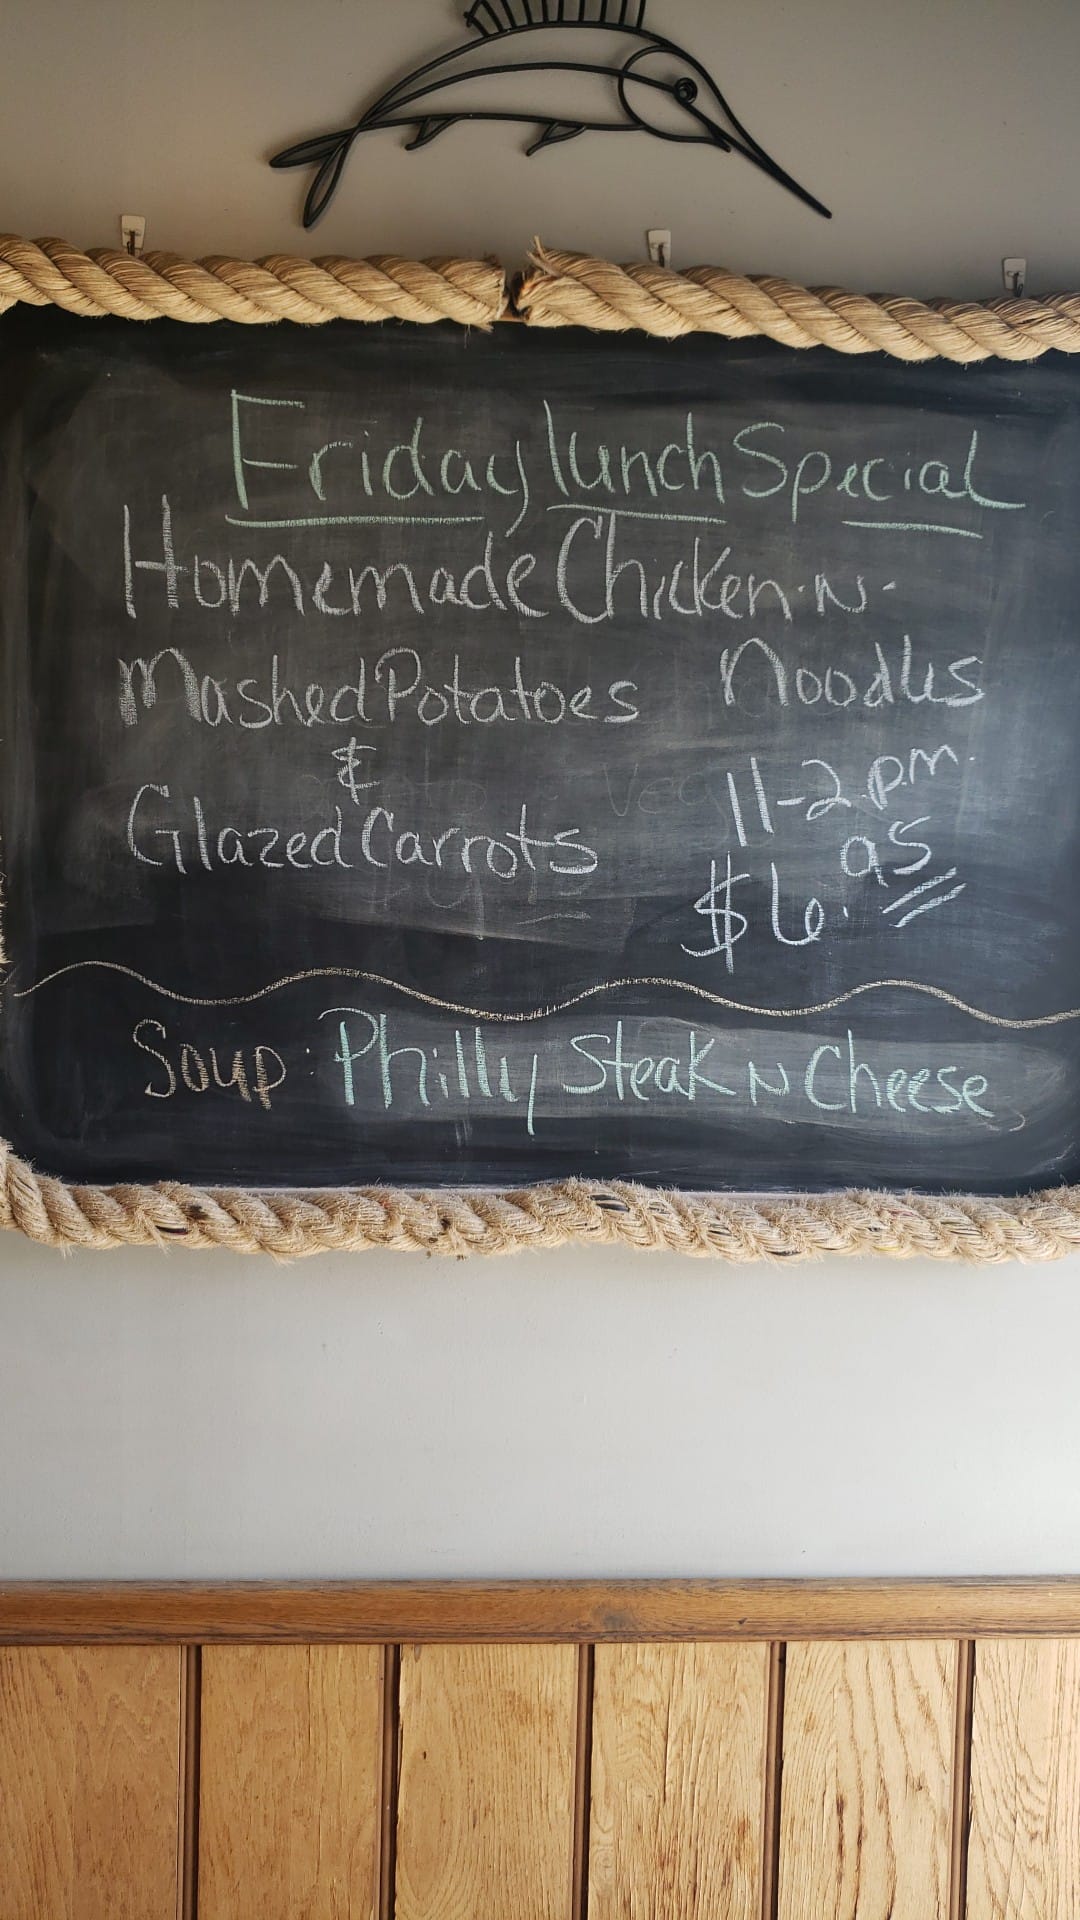 Friday lunch Special
Homemade Chicken-N-
Noodles
Mashed Potatoes
&
Glazed Carrots
11-2 p.m.
$6.95
Soup: Philly Steak N Cheese